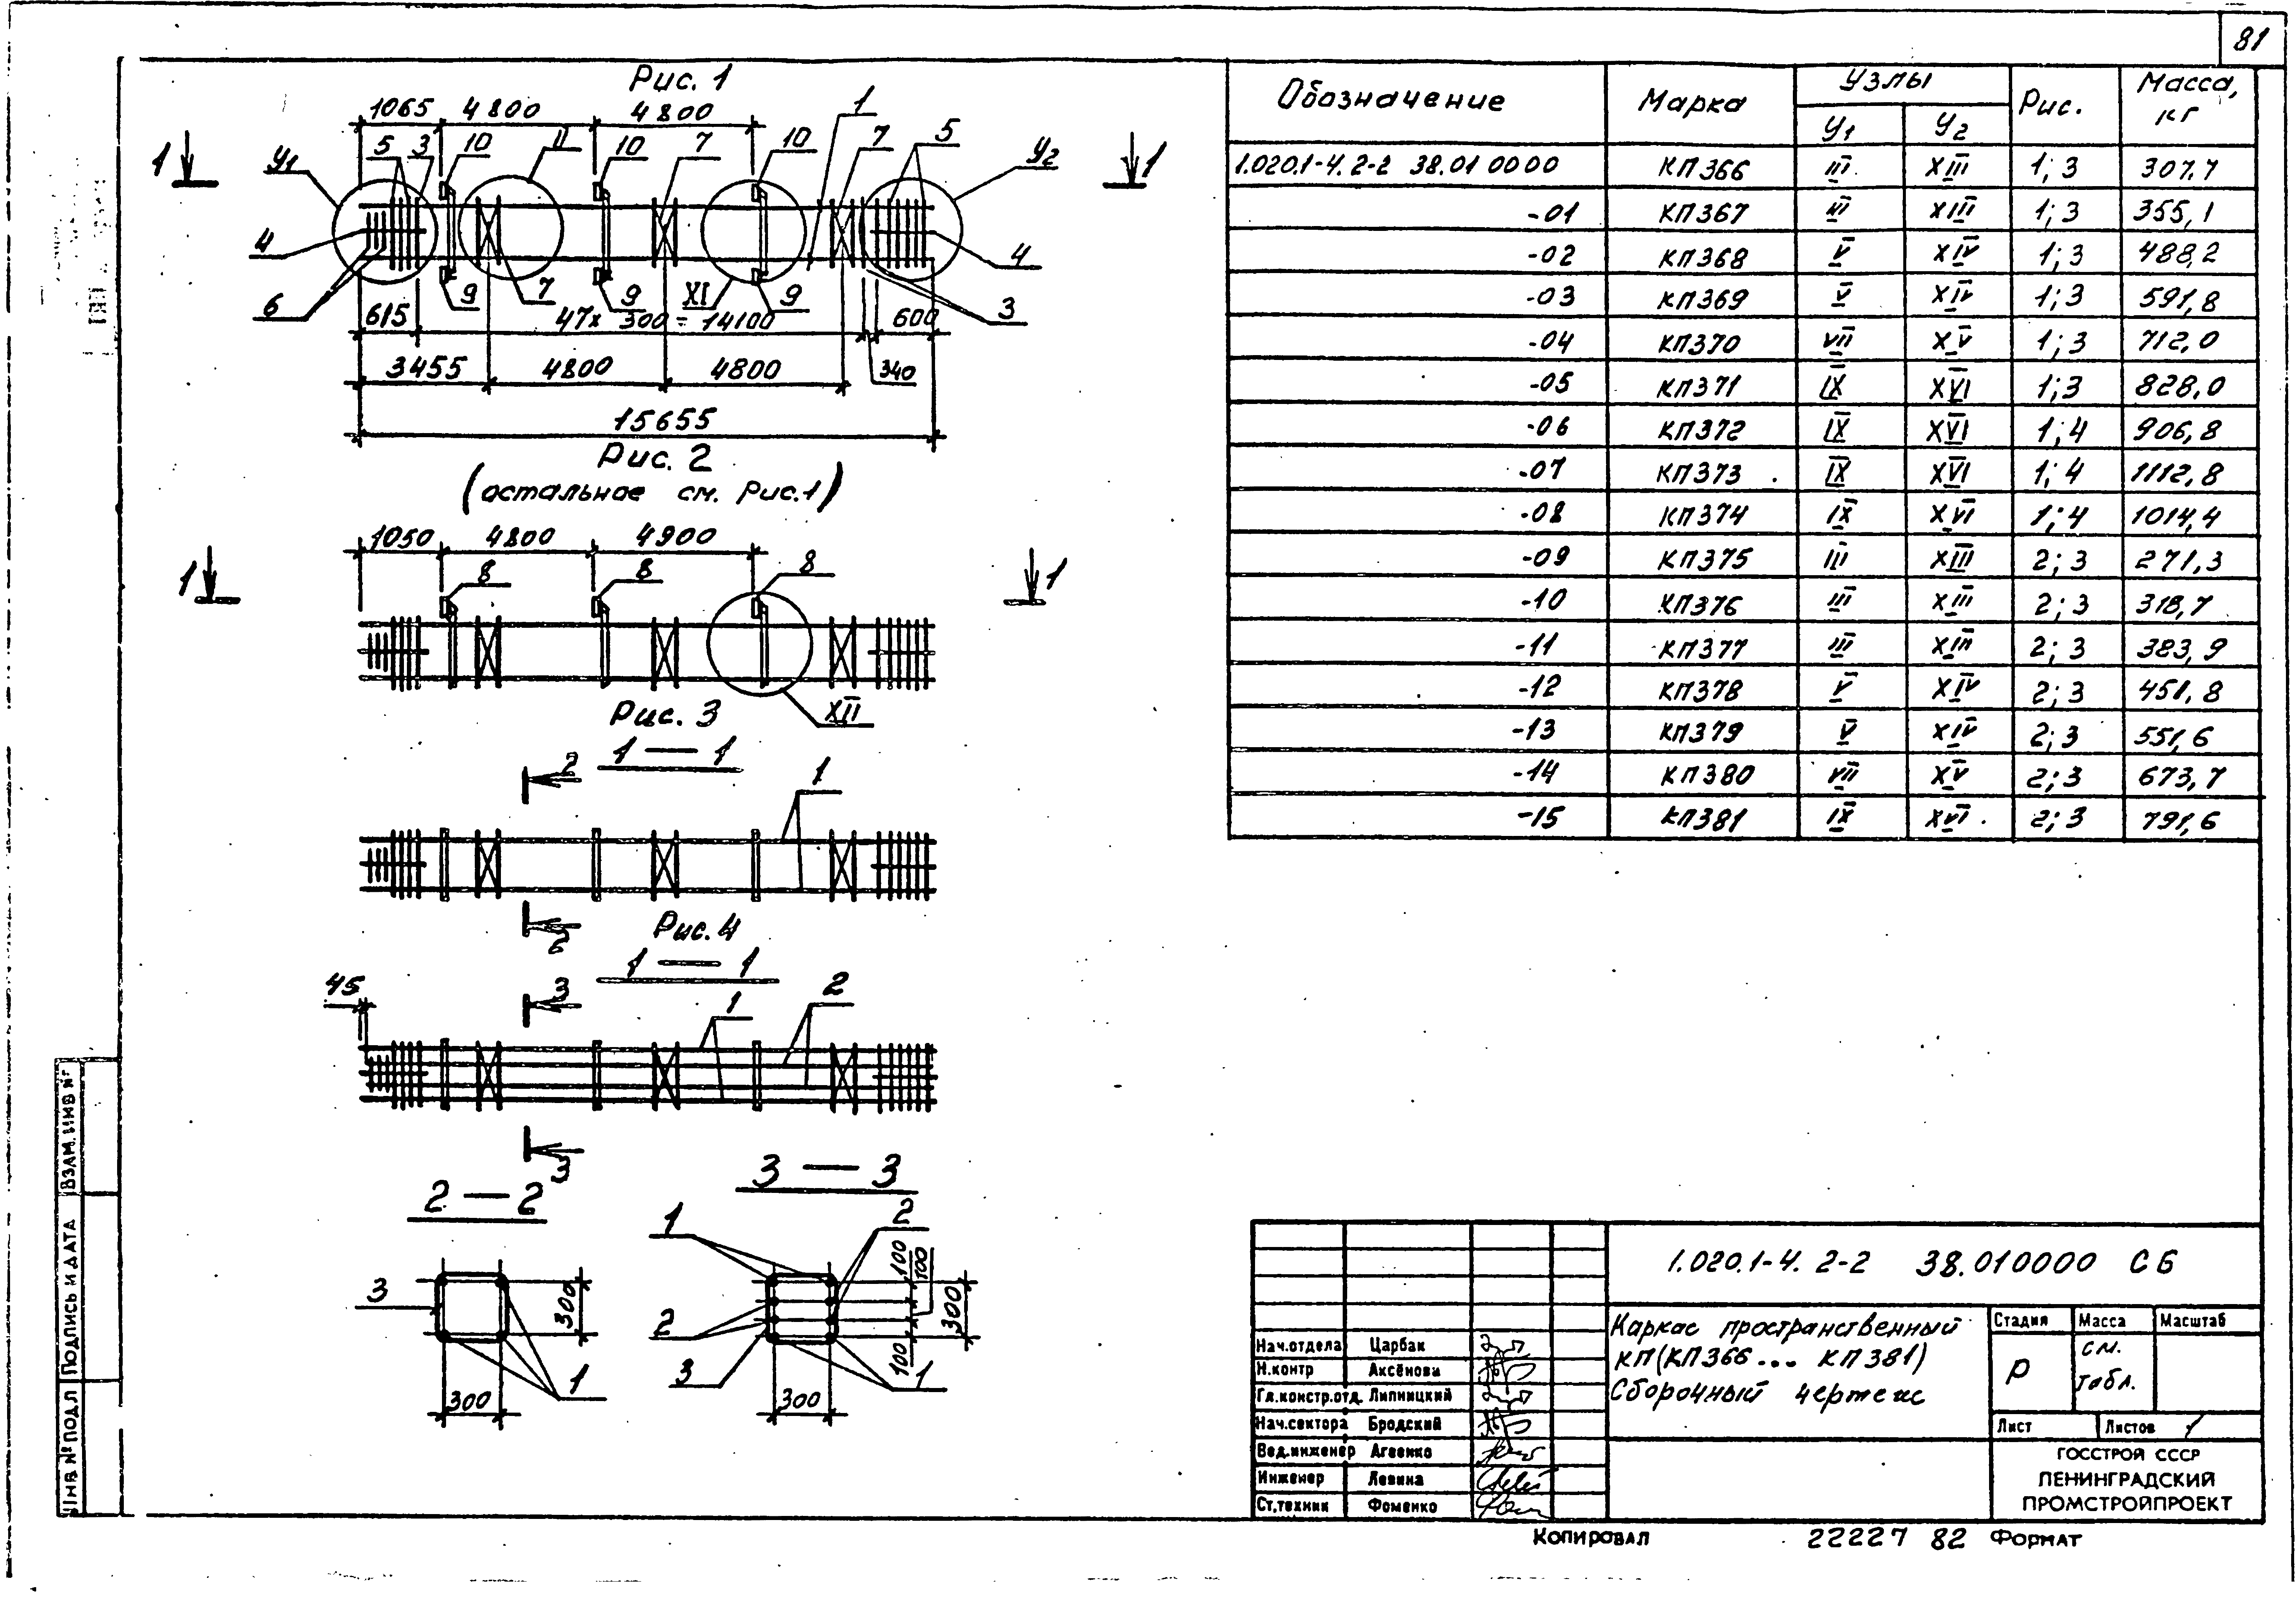 81
Рис. 1
1065 4800 4800 1
1 У1 5 3 10 II 10 7 10 7 5 У2 1
4 4
6 9 7 9 XI 9 3
615 47х 300 = 14100 600
3455 4800 4800 340
15655
Рис. 2
(остальное см. Рис.1)
1050 4800 4900
1 8 8 8 1
XII
Рис. 3
1 — 1
2 1
2
Рис. 4
1 — 1
45 3 1 2
3
2 — 2
3 300 1
300
3 — 3
1 2 100 100
2 300
3 100 1
300
Обозначение Марка Узлы Рис. Масса, кг
У1 У2
1.020.1-4. 2-2 38.01 0000 КП366 III XIII 1; 3 307,7
-01 КП367 III XIII 1; 3 355,1
-02 КП368 V XIV 1; 3 488,2
-03 КП369 V XIV 1; 3 591,8
-04 КП370 VII XV 1; 3 712,0
-05 КП371 IX XVI 1; 3 828,0
-06 КП372 IX XVI 1; 4 906,8
-07 КП373 IX XVI 1; 4 1112,8
-08 КП374 IX XVI 1; 4 1014,4
-09 КП375 III XIII 2; 3 271,3
-10 КП376 III XIII 2; 3 318,7
-11 КП377 III XIII 2; 3 383,9
-12 КП378 V XIV 2; 3 451,8
-13 КП379 V XIV 2; 3 551,6
-14 КП380 VII XV 2; 3 673,7
-15 КП381 IX XVI 2; 3 791,6
1.020.1-4. 2-2 38.010000 СБ
Каркас пространственный
КП(КП366... КП381)
Сборочный чертеж
Стадия Масса Масштаб
Р см. табл.
Лист Листов 1
ГОССТРОЙ СССР
ЛЕНИНГРАДСКИЙ
ПРОМСТРОЙПРОЕКТ
Нач.отдела Царбак
Н.контр Аксёнова
Гл.констр.отд. Липницкий
Нач.сектора Бродский
Вед.инженер Агеенко
Инженер Левина
Ст.техник Фоменко
Копировал 22227 82 Формат
Инв.№ подл Подпись и дата Взам.инв №